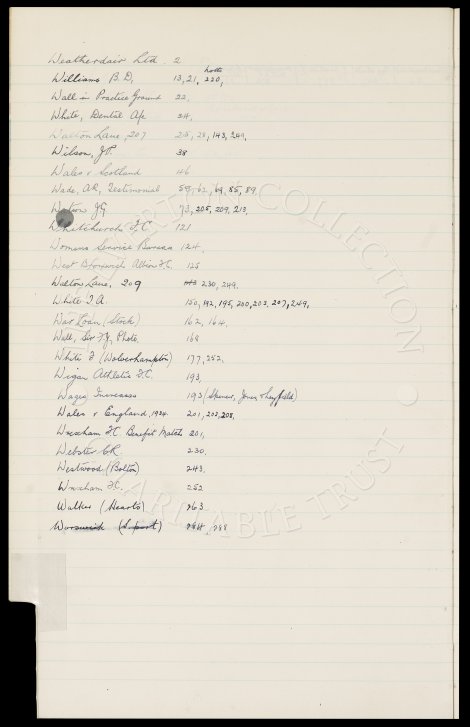 Weatherdair Ltd. 2
Williams B.D. 13, 21, 220,
Wall in Practice Ground 22,
White, Dental Ap 34,
Walton Lane, 207 25, 28, 143, 249,
Wilson, J.P. 38
Wales v Scotland 46
Wade, A.R, Testimonial 59, 62, 69, 85, 89,
Watson J.G. 73, 205, 209, 213,
Whitchurch F.C. 121
Womens Service Bureau 124,
West Bromwich Albion F.C. 125
Walton Lane, 209 230, 249.
White T.A. 150, 192, 195, 200, 203, 207, 249,
War Loan (Stock) 162, 164,
Wall, Sir F.J, Photo, 168
White J (Wolverhampton) 177, 252,
Wigan Athletic F.C. 193,
Wages Increases 193 (Spencer, Jones &
Wales v England, 1934. 201, 203, 208,
Wrexham F.C. Benefit Match 201,
Webster C.R. 230,
Westwood (Bolton) 243,
Wrexham F.C. 252
Walker (Hearts) 263
Warswick 288
EVERTON COLLECTION
CHARITABLE TRUST